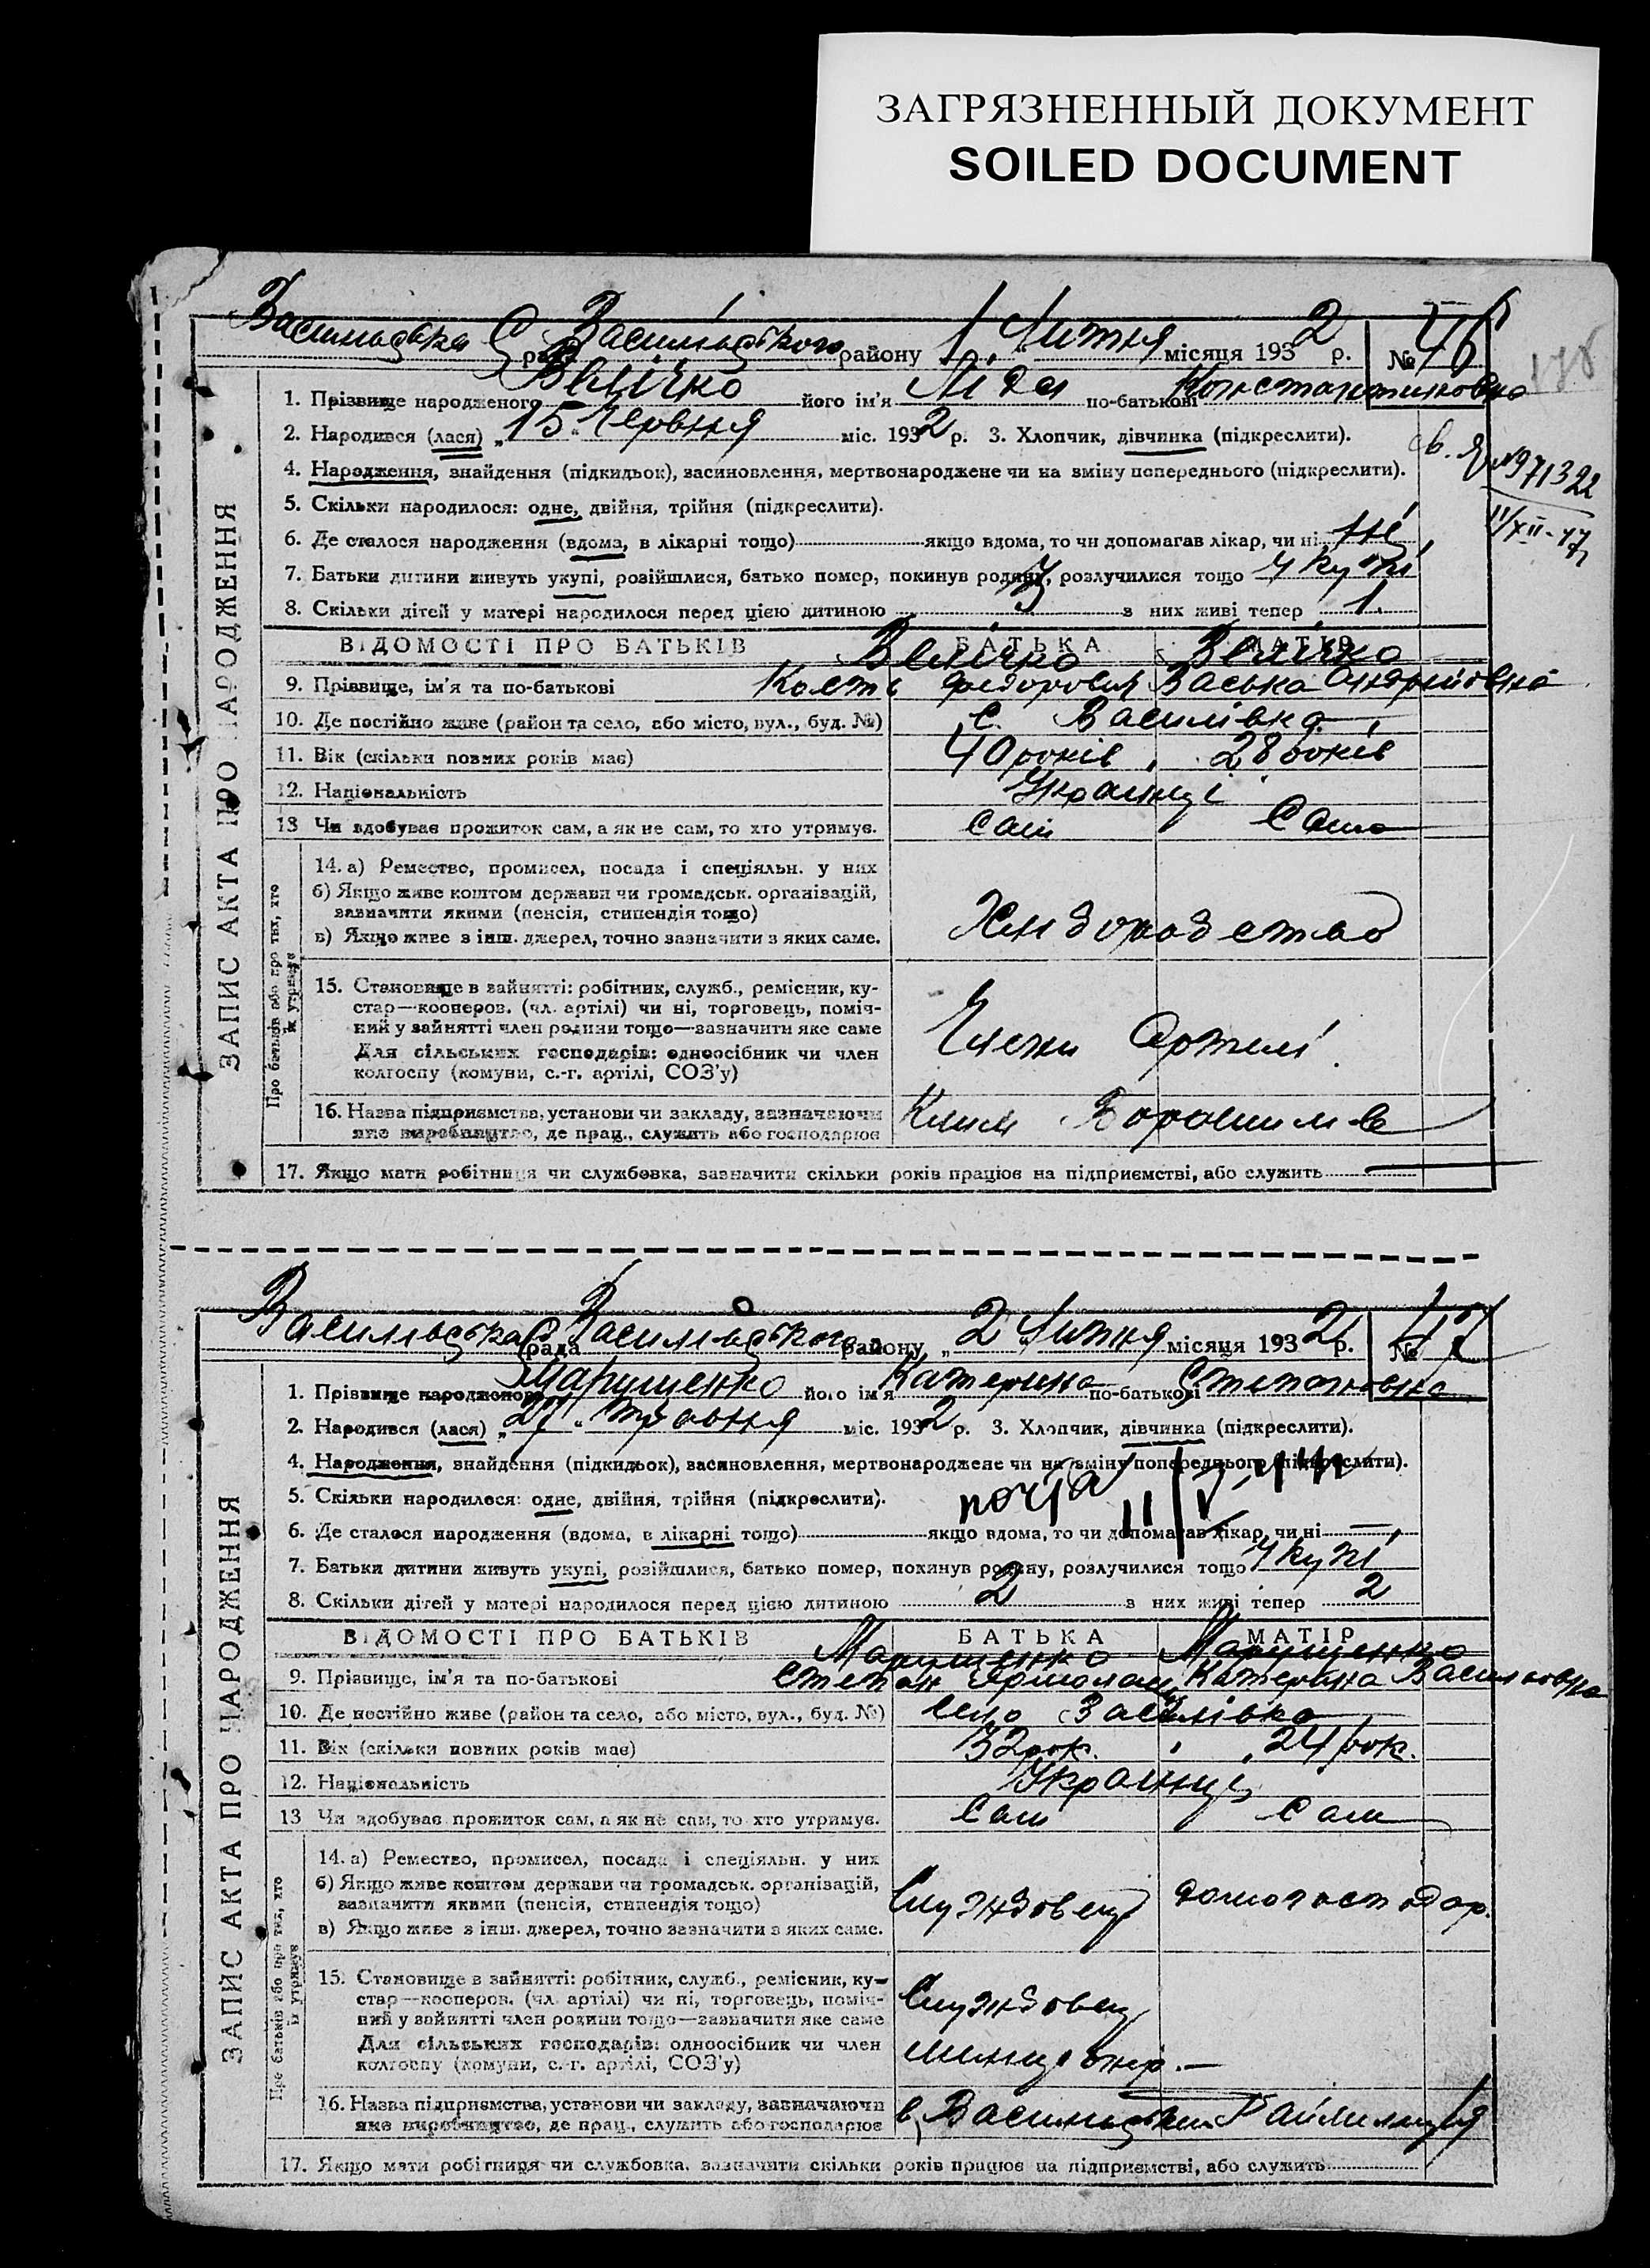 ЗАГРЯЗНЕННЫЙ ДОКУМЕНТ
SOILED DOCUMENT
Васильевська С рада Васильевського району „1“ Липня місяця 1932 р. № 46
1. Прізвище народженого Велічко його ім'я Ліда по-батькові Константиновна
2. Народився (лася) „15“ Червня міс. 1932 р. 3. Хлопчик, дівчинка (підкреслити).
4. Народження, знайдення (підкидьок), засиновлення, мертвонароджене чи на зміну попереднього (підкреслити).
5. Скільки народилося: одне, двійня, трійня (підкреслити).
6. Де сталося народження (вдома, в лікарні тощо) якщо вдома, то чи допомагав лікар, чи ні Ні
7. Батьки дитини живуть укупі, розійшлися, батько помер, покинув родину, розлучилися тощо Укупі
8. Скільки дітей у матері народилося перед цією дитиною 3 з них живі тепер 1.
ВІДОМОСТІ ПРО БАТЬКІВ БАТЬКА МАТІР
9. Прізвище, ім'я та по-батькові Велічко Кость Федорович Велічко Васька Андрійовна
10. Де постійно живе (район та село, або місто, вул., буд. №) С. Василівка
11. Вік (скільки повних років має) 40 років 28 років
12. Національність Українці
13 Чи здобуває прожиток сам, а як не сам, то хто утримує. Сам Сама
14. а) Ремество, промисел, посада і спеціяльн. у них
б) Якщо живе коштом держави чи громадськ. організацій,
зазначити якими (пенсія, стипендія тощо)
в) Якщо живе з інш. джерел, точно зазначити з яких саме.
Хлібородство
15. Становище в зайнятті: робітник, служб., ремісник, ку-
стар—кооперов. (чл. артілі) чи ні, торговець, поміч-
ний у зайнятті член родини тощо—зазначити яке саме
Для сільських господарів: одноосібник чи член
колгоспу (комуни, с.-г. артілі, СОЗ'у)
Члени Артілі.
16. Назва підприємства, установи чи закладу, зазначаючи
яке виробництво, де прац., служить або господарює
Клим Ворошилов
17. Якщо мати робітниця чи службовка, зазначити скільки років працює на підприємстві, або служить
ЗАПИС АКТА ПРО НАРОДЖЕННЯ
Про батьків або про тих, хто їх утримує
971322
Васильевська С рада Васильевського району „2“ Липня місяця 1932 р. № 47
1. Прізвище народженого Марущенко його ім'я Катерина по-батькові Степановна
2. Народився (лася) „27“ травня міс. 1932 р. 3. Хлопчик, дівчинка (підкреслити).
4. Народження, знайдення (підкидьок), засиновлення, мертвонароджене чи на зміну попереднього (підкреслити).
5. Скільки народилося: одне, двійня, трійня (підкреслити).
6. Де сталося народження (вдома, в лікарні тощо) якщо вдома, то чи допомагав лікар, чи ні —
7. Батьки дитини живуть укупі, розійшлися, батько помер, покинув родину, розлучилися тощо Укупі
8. Скільки дітей у матері народилося перед цією дитиною 2 з них живі тепер 2
ВІДОМОСТІ ПРО БАТЬКІВ БАТЬКА МАТІР
9. Прізвище, ім'я та по-батькові Марущенко Степан Марущенко Катерина
10. Де постійно живе (район та село, або місто, вул., буд. №) Село Василівка
11. Вік (скільки повних років має) 32 рок. 24 рок.
12. Національність Українці
13 Чи здобуває прожиток сам, а як не сам, то хто утримує. Сам Сам
14. а) Ремество, промисел, посада і спеціяльн. у них
б) Якщо живе коштом держави чи громадськ. організацій,
зазначити якими (пенсія, стипендія тощо)
в) Якщо живе з інш. джерел, точно зазначити з яких саме.
Службовец домогосподар.
15. Становище в зайнятті: робітник, служб., ремісник, ку-
стар—кооперов. (чл. артілі) чи ні, торговець, поміч-
ний у зайнятті член родини тощо—зазначити яке саме
Для сільських господарів: одноосібник чи член
колгоспу (комуни, с.-г. артілі, СОЗ'у)
Службовец
міліціонер.
16. Назва підприємства, установи чи закладу, зазначаючи
яке виробництво, де прац., служить або господарює
в Васильевськ Райміліція
17. Якщо мати робітниця чи службовка, зазначити скільки років працює на підприємстві, або служить
ЗАПИС АКТА ПРО НАРОДЖЕННЯ
Про батьків або про тих, хто їх утримує